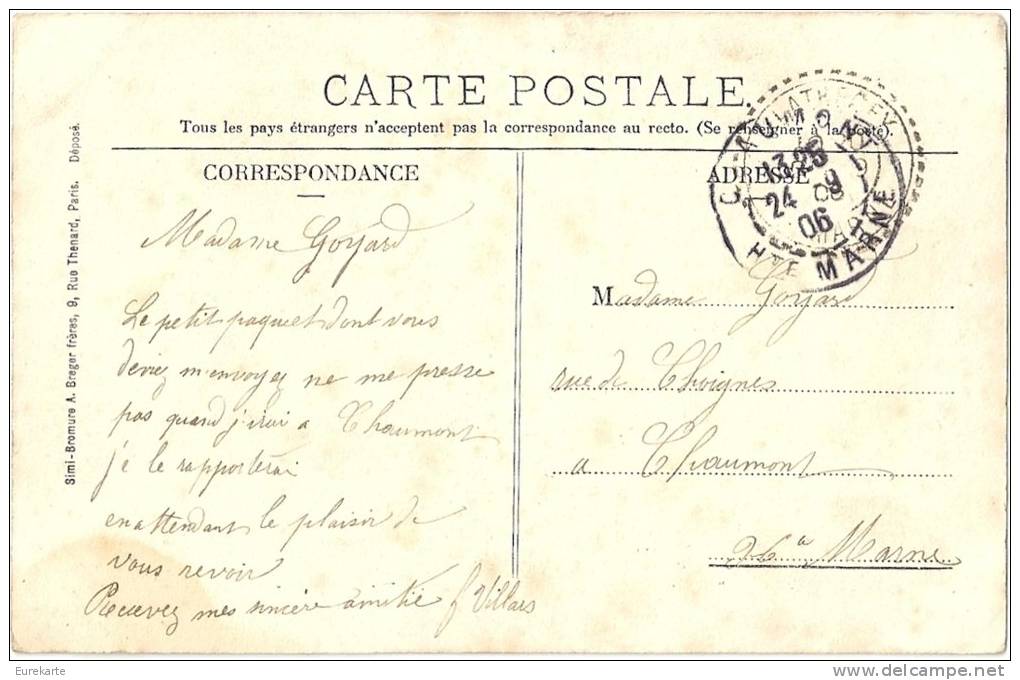 CARTE POSTALE
Tous les pays étrangers n'acceptent pas la correspondance au recto. (Se renseigner à la poste).
CORRESPONDANCE
Madame Goyard
Le petit paquet dont vous
deviez m'envoyez ne me presse
pas quand j'irai a Chaumont
je le rapporterai
en attendant le plaisir de
vous revoir
Recevez mes sincère amitié
Villars
ADRESSE
Madame Goyard
rue de Choignes
a Chaumont
Marne
CHAUMONT
13 25
24 9
06
HTE MARNE
Simi-Bromure A. Breger frères, 9, Rue Thenard, Paris. Déposé.
Eurekarte
delcampe.net